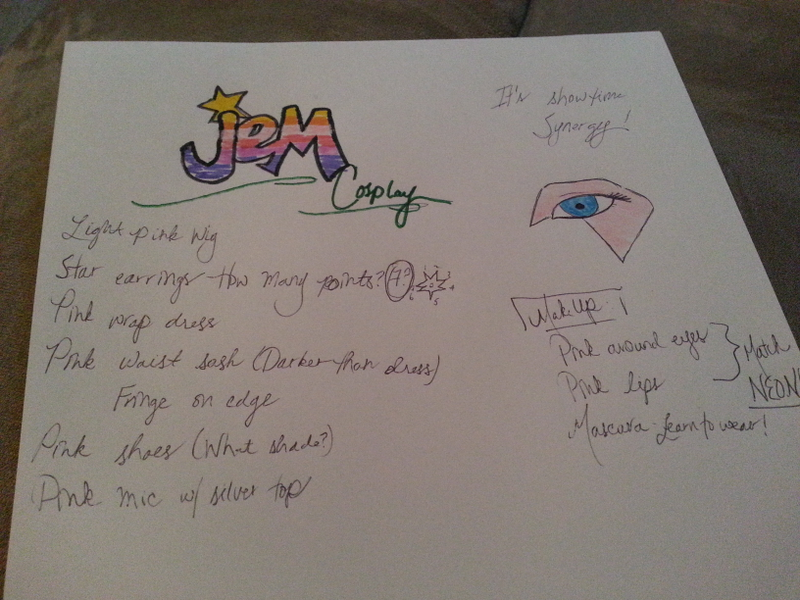 JEM
Cosplay
Light pink wig
Star earrings - How many points? 7?
Pink wrap dress
Pink waist sash (Darker than dress)
Fringe on edge
Pink shoes (What shade?)
Pink mic w/ silver top
It's showtime
Synergy!
Make Up:
Pink around eyes
Pink lips
Match
NEON!
Mascara - Learn to wear!